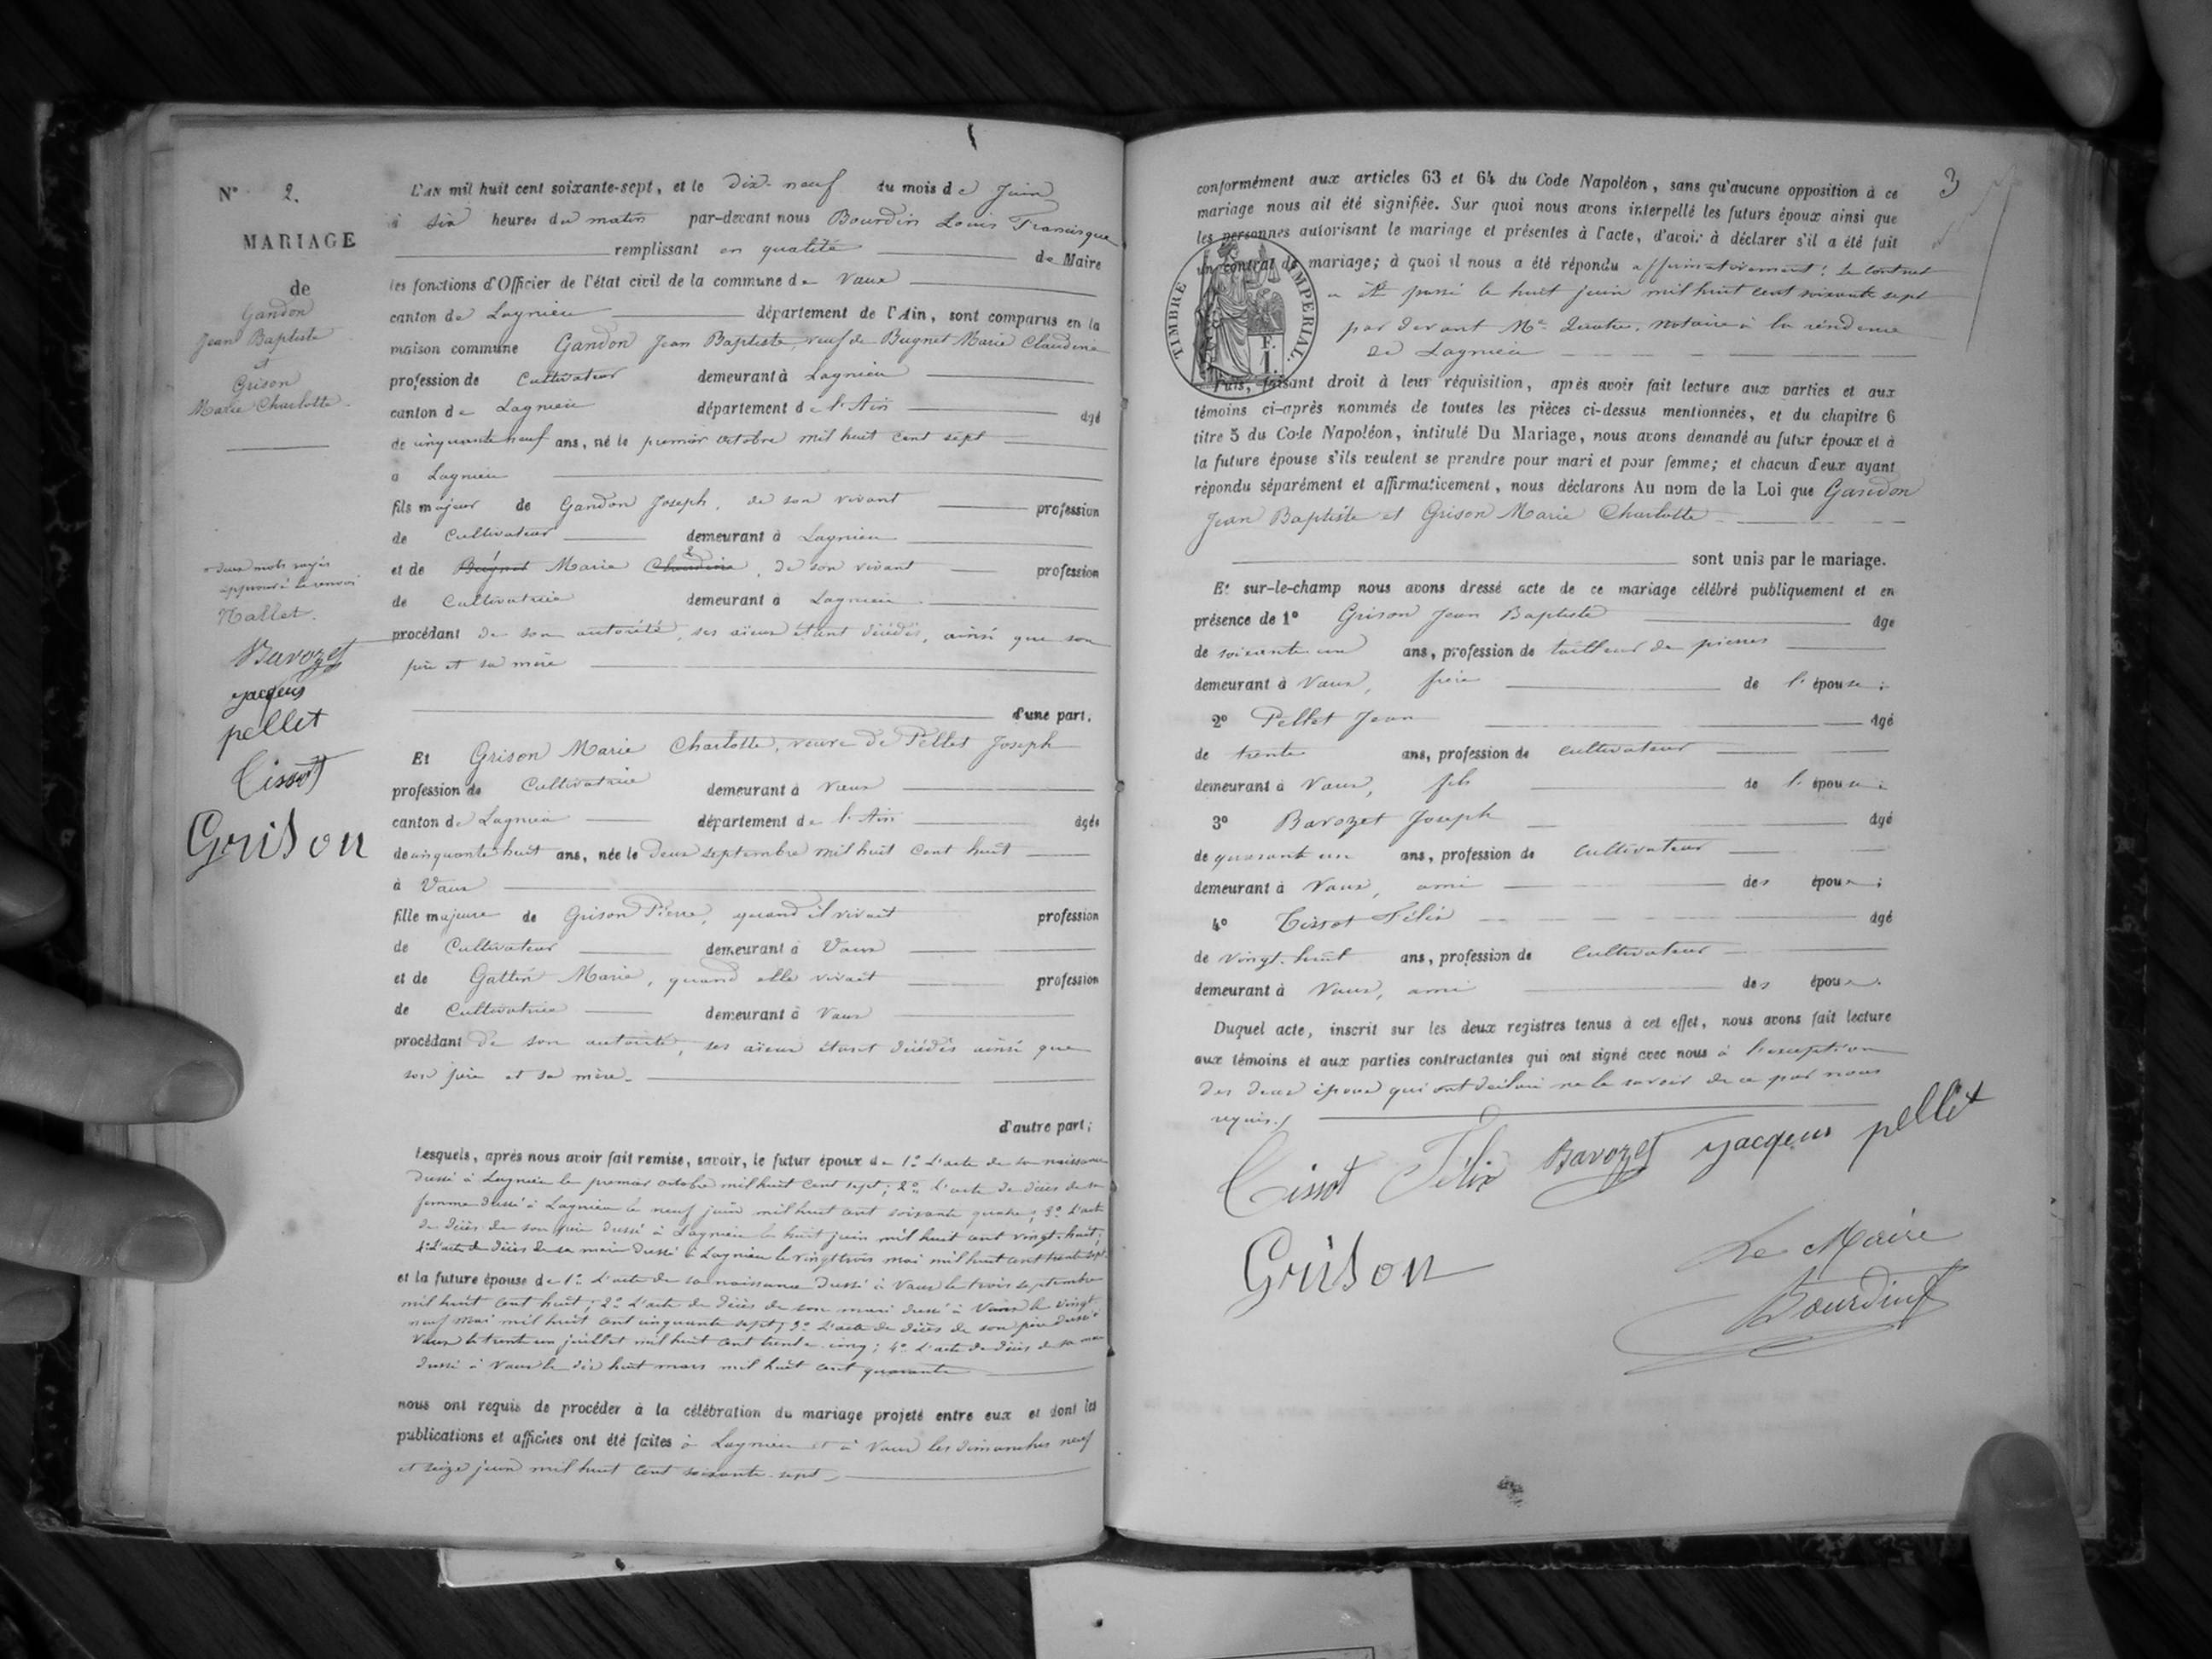 N° 2.
MARIAGE
de
Gandon
Jean Baptiste
et
Grison
Marie Charlotte.
deux mots rayés
approuvé le renvoi
Nallet.
Bavozet
yacqeus
pellet
Tissot
Grison
L'AN mil huit cent soixante-sept, et le dix-neuf du mois de Juin
à six heures du matin par-devant nous Bourdin Louis Francisque
remplissant en qualité de Maire
les fonctions d'Officier de l'état civil de la commune de Vaux
canton de Lagnieu département de l'Ain, sont comparus en la
maison commune Gandon Jean Baptiste, veuf de Bugnet Marie Claudine
profession de Cultivateur demeurant à Lagnieu
canton de Lagnieu département de l'Ain âgé
de cinquante neuf ans, né le premier octobre mil huit cent sept
à Lagnieu
fils majeur de Gandon Joseph, de son vivant profession
de Cultivateur demeurant à Lagnieu
et de Bugnet Marie Claudine, de son vivant profession
de Cultivatrice demeurant à Lagnieu
procédant de son autorité, ses aïeux étant décédés, ainsi que son
père et sa mère
d'une part,
Et Grison Marie Charlotte, veuve de Pellet Joseph
profession de Cultivatrice demeurant à Vaux
canton de Lagnieu département de l'Ain âgée
de cinquante huit ans, née le deux septembre mil huit cent huit
à Vaux
fille majeure de Grison Pierre, quand il vivait profession
de Cultivateur demeurant à Vaux
et de Gallin Marie, quand elle vivait profession
de Cultivatrice demeurant à Vaux
procédant de son autorité, ses aïeux étant décédés ainsi que
son père et sa mère.
d'autre part;
Lesquels, après nous avoir fait remise, savoir, le futur époux de 1° L'acte de sa naissance
dressé à Lagnieu le premier octobre mil huit cent sept; 2° l'acte de décès de sa
femme dressé à Lagnieu le neuf juin mil huit cent soixante quatre; 3° L'acte
de décès de son père dressé à Lagnieu le huit juin mil huit cent vingt-huit;
4° L'acte de décès de sa mère dressé à Lagnieu le vingt trois mai mil huit cent trente sept.
et la future épouse de 1° L'acte de sa naissance dressé à Vaux le trois septembre
mil huit cent huit; 2° L'acte de décès de son mari dressé à Vaux le vingt
neuf mai mil huit cent cinquante sept; 3° L'acte de décès de son père dressé à
Vaux le trente un juillet mil huit cent trente-cinq; 4° L'acte de décès de sa mère
dressé à Vaux le dix huit mars mil huit cent quarante
nous ont requis de procéder à la célébration du mariage projeté entre eux et dont les
publications et affiches ont été faites à Lagnieu et à Vaux les dimanches neuf
et seize juin mil huit cent soixante-sept
3
conformément aux articles 63 et 64 du Code Napoléon, sans qu'aucune opposition à ce
mariage nous ait été signifiée. Sur quoi nous avons interpellé les futurs époux ainsi que
les personnes autorisant le mariage et présentes à l'acte, d'avoir à déclarer s'il a été fait
un contrat de mariage; à quoi il nous a été répondu affirmativement: le contrat
a été passé le huit juin mil huit cent soixante sept
par devant Me notaire à la résidence
de Lagnieu
TIMBRE IMPERIAL.
F.
1.
Puis, faisant droit à leur réquisition, après avoir fait lecture aux parties et aux
témoins ci-après nommés de toutes les pièces ci-dessus mentionnées, et du chapitre 6
titre 5 du Code Napoléon, intitulé Du Mariage, nous avons demandé au futur époux et à
la future épouse s'ils veulent se prendre pour mari et pour femme; et chacun d'eux ayant
répondu séparément et affirmativement, nous déclarons Au nom de la Loi que Gandon
Jean Baptiste et Grison Marie Charlotte
sont unis par le mariage.
Et sur-le-champ nous avons dressé acte de ce mariage célébré publiquement et en
présence de 1° Grison Jean Baptiste âge
de soixante un ans, profession de tailleur de pierres
demeurant à Vaux, frère de l'épouse;
2° Pellet Jean âgé
de trente ans, profession de cultivateur
demeurant à Vaux, fils de l'épouse;
3° Bavozet Joseph âgé
de quarante un ans, profession de Cultivateur
demeurant à Vaux, ami des époux;
4° Tissot Félix âgé
de vingt-huit ans, profession de Cultivateur
demeurant à Vaux, ami des époux.
Duquel acte, inscrit sur les deux registres tenus à cet effet, nous avons fait lecture
aux témoins et aux parties contractantes qui ont signé avec nous à l'exception
des deux époux qui ont déclaré ne le savoir de ce par nous
requis./
Tissot Félix Bavozet yacqeus pellet
Grison
Le Maire
Bourdin